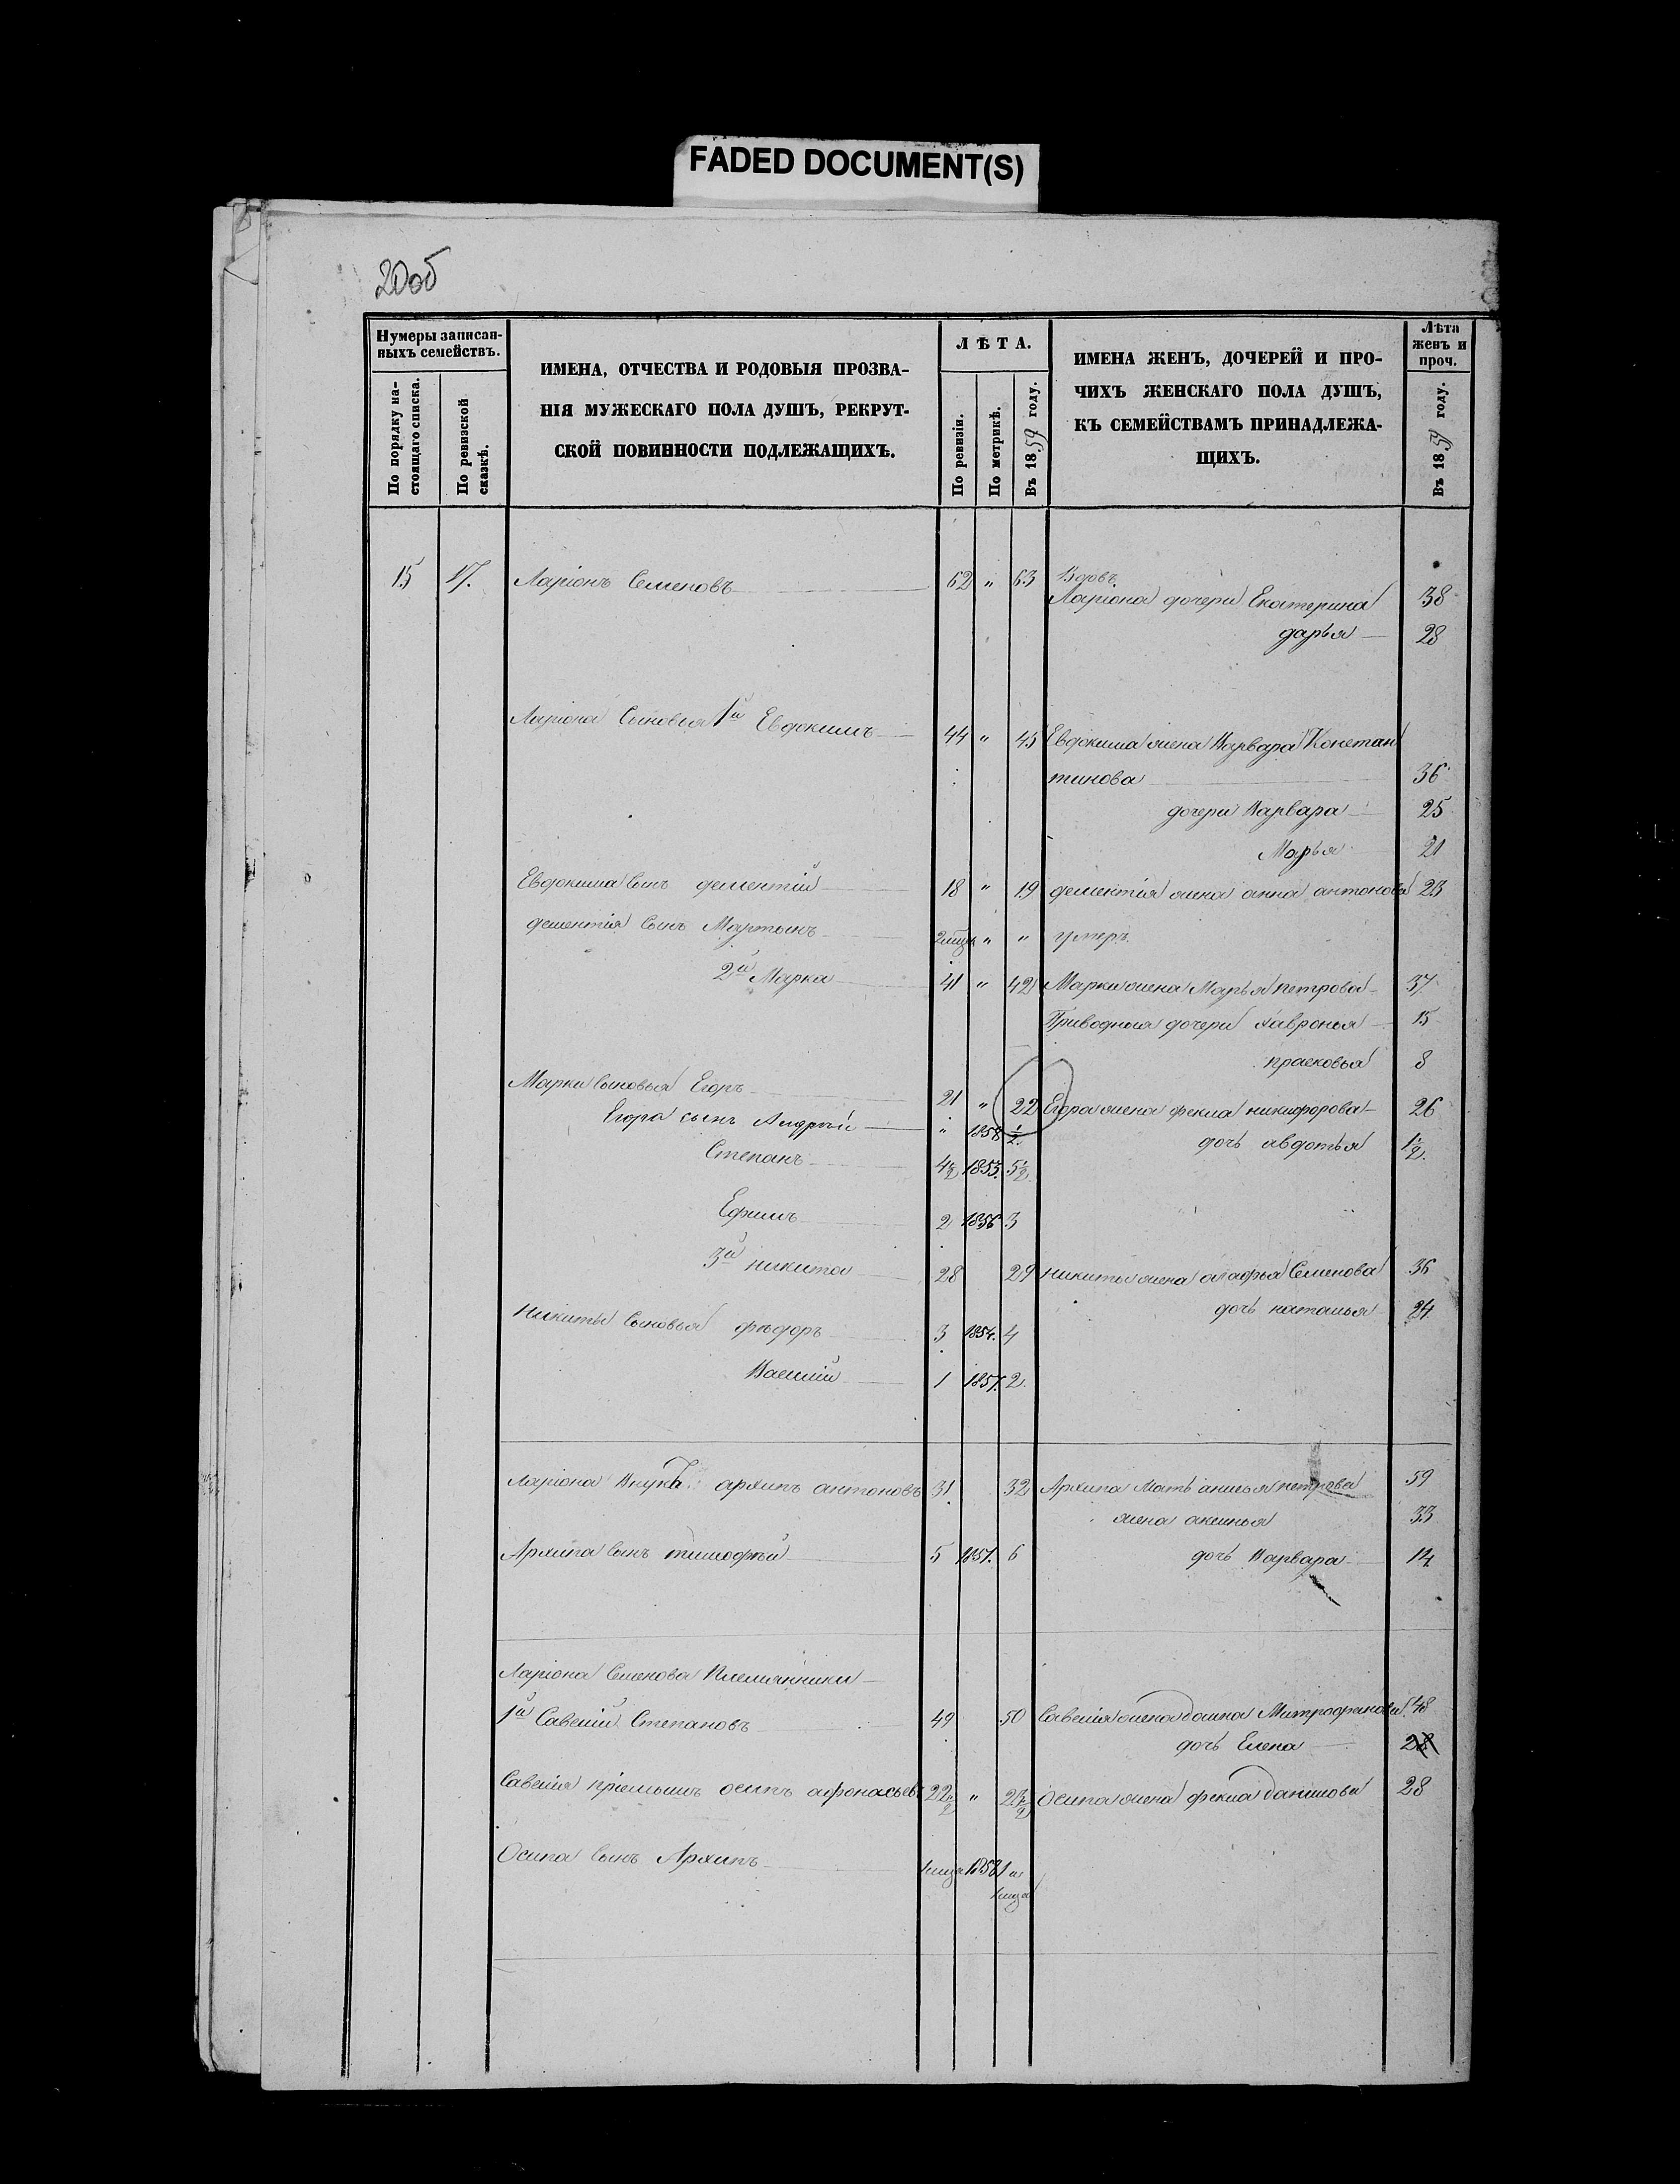 FADED DOCUMENT(S)
20об
Нумеры записан-
ныхъ семействъ.
По порядку на-
стоящаго списка.
По ревизской
сказкѣ.
ИМЕНА, ОТЧЕСТВА И РОДОВЫЯ ПРОЗВА-
НІЯ МУЖЕСКАГО ПОЛА ДУШЪ, РЕКРУТ-
СКОЙ ПОВИННОСТИ ПОДЛЕЖАЩИХЪ.
ЛѢТА.
По ревизіи.
По метрикѣ.
Въ 1859 году.
ИМЕНА ЖЕНЪ, ДОЧЕРЕЙ И ПРО-
ЧИХЪ ЖЕНСКАГО ПОЛА ДУШЪ,
КЪ СЕМЕЙСТВАМЪ ПРИНАДЛЕЖА-
ЩИХЪ.
Лѣта
женъ и
проч.
Въ 1859 году.
15 17. Ларіонъ Семеновъ 62 " 63 Вдовъ
Ларіона дочери Екатерина 38
дарья 28
Ларіона Сыновья 1й Евдокимъ 44 " 45 Евдокима жена Варвара Констан
тинова 36
дочери Варвара 25
Марья 21
Евдокима Сынъ дементій 18 " 19 дементія жена анна антонова 23
дементія Сынъ Мартынъ 2 мца " " умеръ
2й Марка 41 " 42 Марки жена Марья петрова 37
Приводныя дочери хавронья 15
прасковья 8
Марки Сыновья Егоръ 21 " 22 Егора жена фекла никифорова 26
Егора сынъ Андрей " 1858 ½ дочь авдотья 1½
Степанъ 4½ 1853. 5½
Ефимъ 2 1856 3
3й никита 28 29 никиты жена агафья Семенова 36
дочь наталья 24
Никиты Сыновья фѣдоръ 3 1854. 4
Василій 1 1857. 2
Ларіона Внукъ архипъ антоновъ 31 32 Архипа мать анисья петрова 59
жена аксинья 33
Архипа Сынъ тимофѣй 5 1851. 6 дочь Варвара 14
Ларіона Семенова Племянники
1й Савелій Степановъ 49 50 Савелія жена домна Митрофанова 48
дочь Елена 28
Савелія пріемышъ осипъ афонасьевъ 22½ " 23½ Осипа жена фекла данилова 28
Осипа Сынъ Архипъ 1 мца 1858 1 и
1 мца